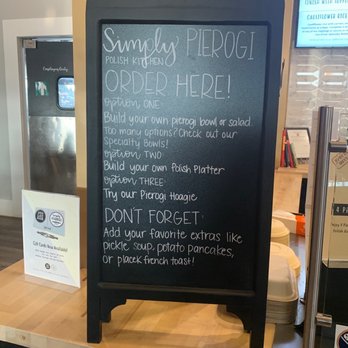 Simply PIEROGI
POLISH KITCHEN
ORDER HERE!
OPTION ONE:
Build your own pierogi bowl or salad.
Too many options? Check out our
Specialty Bowls!
OPTION TWO:
Build your own Polish Platter
OPTION THREE:
Try our Pierogi Hoagie
DON'T FORGET:
Add your favorite extras like
pickle soup, potato pancakes,
or placek french toast!
Employees Only
Gift Cards Now Available!